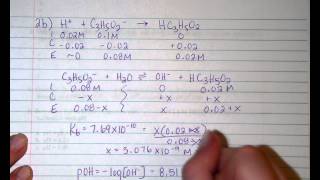 2b) H⁺ + C₃H₅O₂⁻ → HC₃H₅O₂
I 0.02M 0.1M 0
C -0.02 -0.02 +0.02
E ~0 0.08M 0.02M
C₃H₅O₂⁻ + H₂O ⇌ OH⁻ + HC₃H₅O₂
I 0.08M 0 0.02M
C -x +x +x
E 0.08-x x 0.02+x
Kb = 7.69×10⁻¹⁰ = x(0.02
0.08
x = 3.076×10⁻⁹ M
pOH = -log[OH⁻] = 8.51